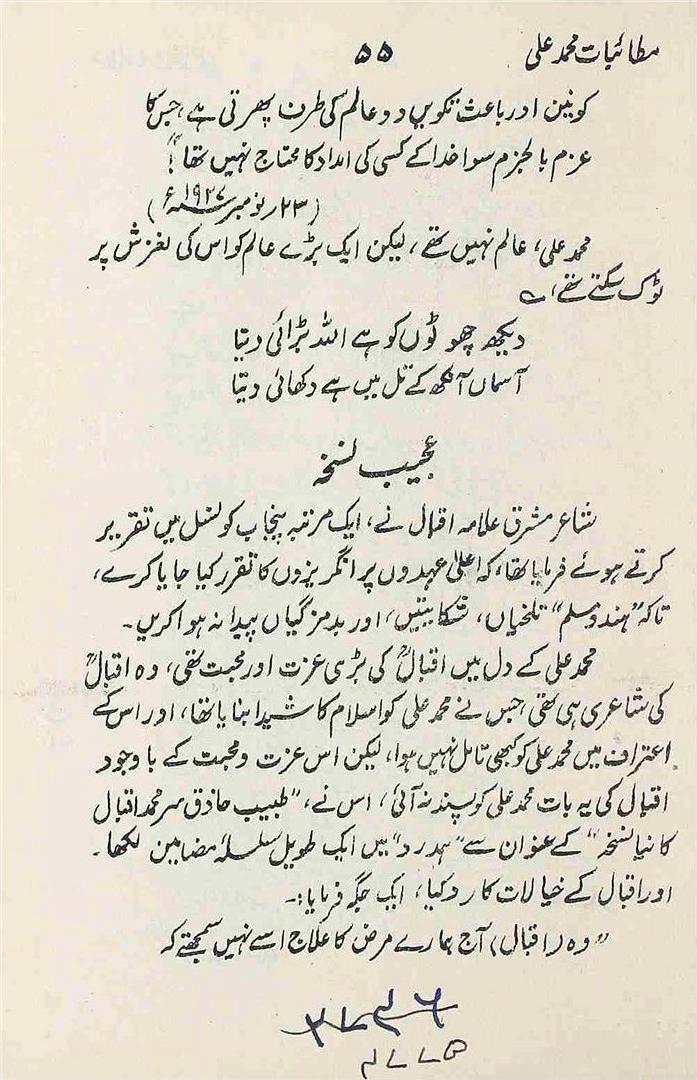 مطائبات محمد علی ۵۵
کونین اور باعث تکوین دو عالم کی طرف پھرتی ہے، جس کا
عزم بالجزم سوا خدا کے کسی کی امداد کا محتاج نہیں تھا"!
(۲۳ر نومبر ۱۹۲۷ء)
محمد علی، عالم نہیں تھے، لیکن ایک بڑے عالم کو اس کی لغزش پر
ٹوک سکتے تھے، ے
دیکھ چھوٹوں کو ہے اللہ بڑائی دیتا
آسماں آنکھ کے تل میں ہے دکھائی دیتا
عجیب نسخہ
شاعر مشرق علامہ اقبال نے، ایک مرتبہ پنجاب کونسل میں تقریر
کرتے ہوئے فرمایا تھا، کہ اعلیٰ عہدوں پر انگریزوں کا تقرر کیا جایا کرے،
تاکہ "ہندو مسلم" تلخیاں، شکایتیں، اور بدمزگیاں پیدا نہ ہوا کریں۔
محمد علی کے دل میں اقبالؒ کی بڑی عزت اور محبت تھی، وہ اقبالؒ
کی شاعری ہی تھی جس نے محمد علی کو اسلام کا شیدا بنایا تھا، اور اس کے
اعتراف میں محمد علی کو کبھی تامل نہیں ہوا، لیکن اس عزت و محبت کے باوجود
اقبال کی یہ بات محمد علی کو پسند نہ آئی، اس نے، "طبیب حاذق سر محمد اقبال
کا نیا نسخہ" کے عنوان سے "ہمدرد" میں ایک طویل سلسلۂ مضامین لکھا۔
اور اقبال کے خیالات کا رد کیا، ایک جگہ فرمایا:۔
"وہ (اقبال) آج ہمارے مرض کا علاج اسے نہیں سمجھتے کہ